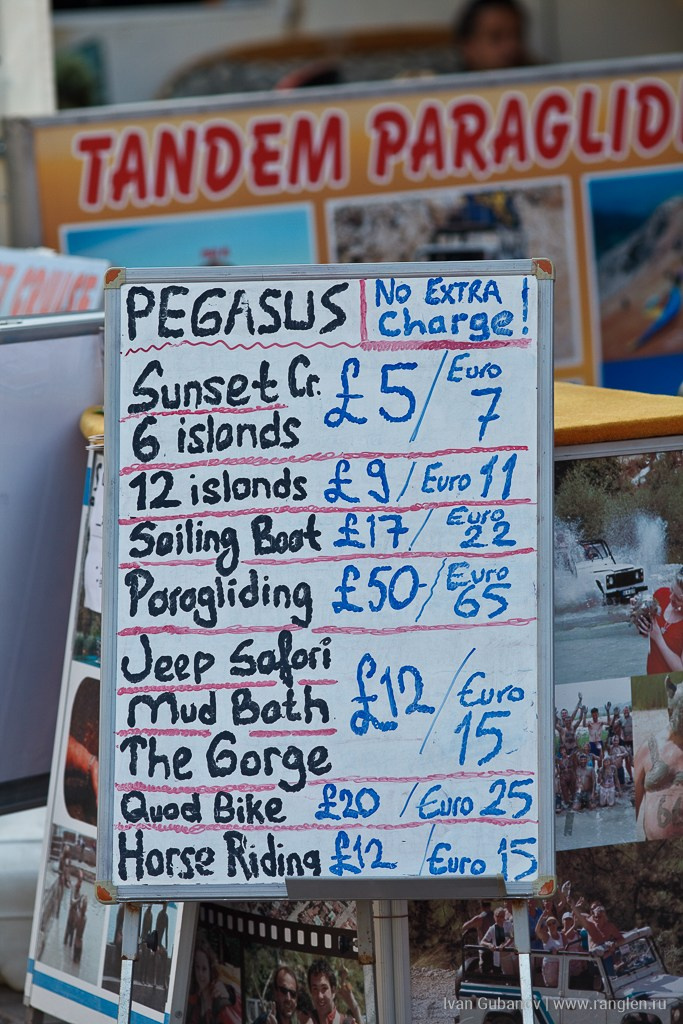 TANDEM PARAGLID
CRUISE
PEGASUS
No EXTRA
Charge!
Sunset Cr.
6 islands
£5/Euro 7
12 islands £9/Euro 11
Sailing Boat £17/Euro 22
Paragliding £50-/Euro 65
Jeep Safari
Mud Bath
The Gorge
£12/Euro 15
Quad Bike £20/Euro 25
Horse Riding £12/Euro 15
Ivan Gubanov | www.ranglen.ru